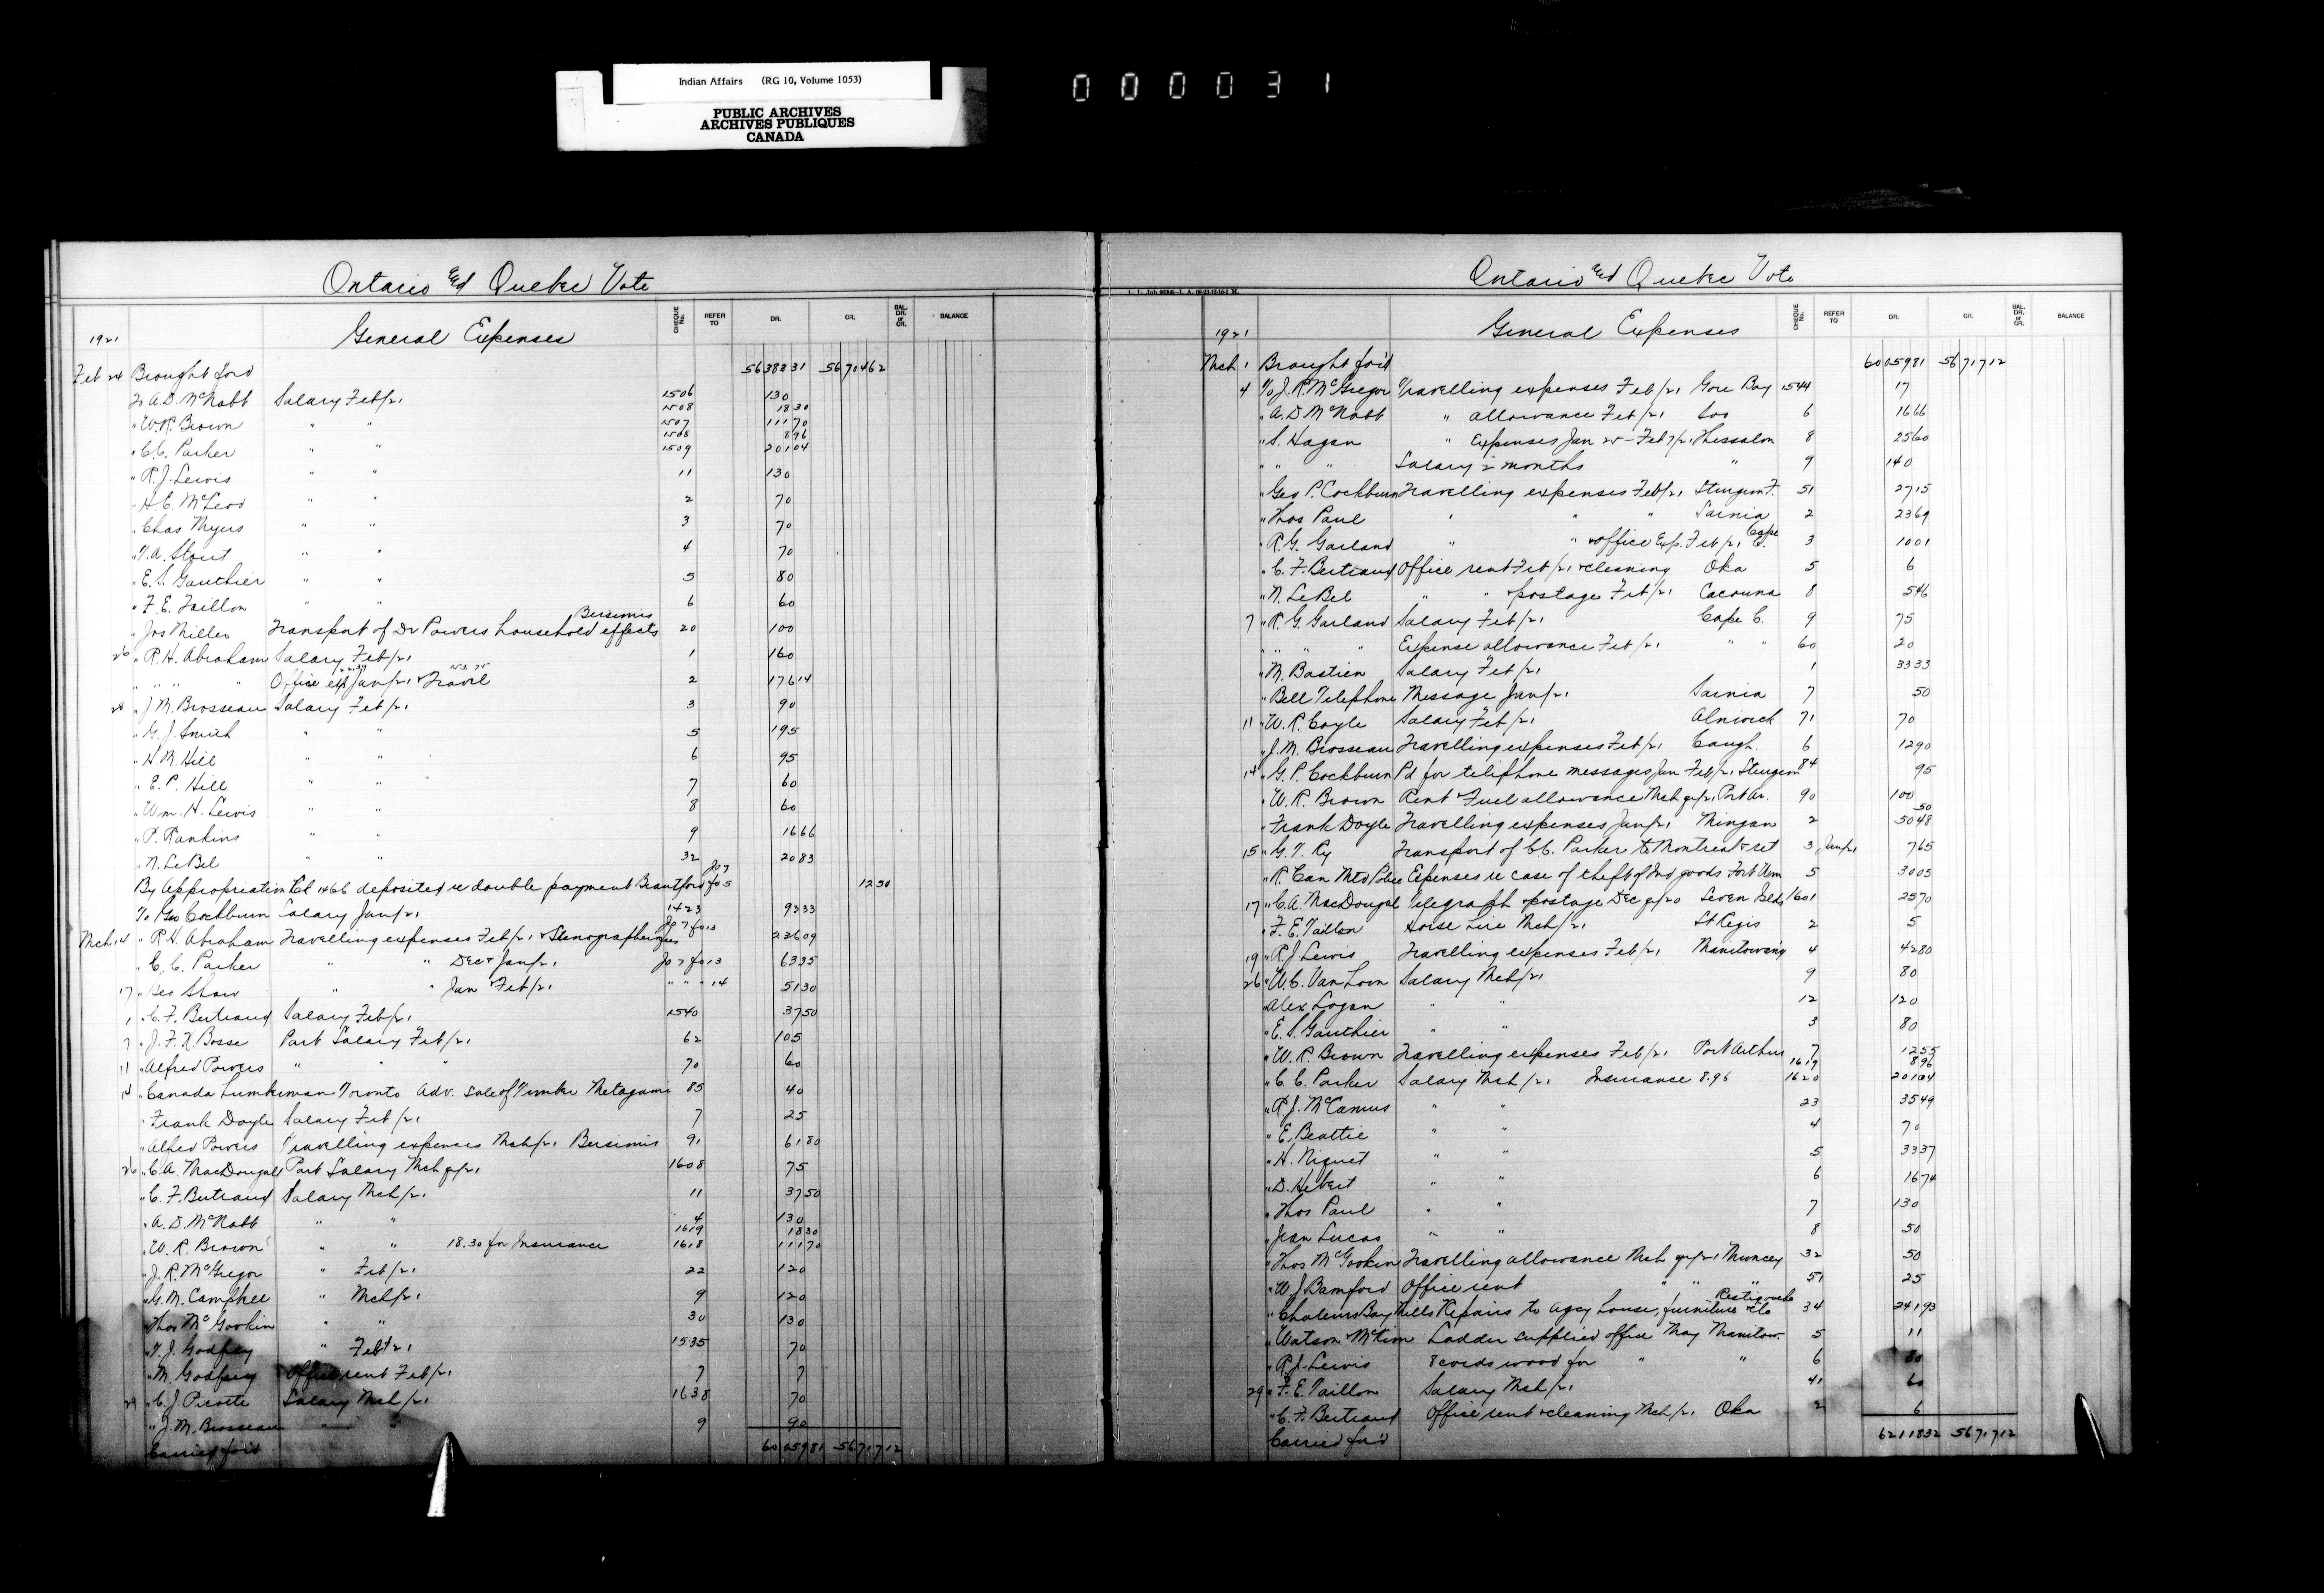 Indian Affairs (RG 10, Volume 1053)
PUBLIC ARCHIVES
ARCHIVES PUBLIQUES
CANADA
000031
Ontario and Quebec Vote
1921 General Expenses CHEQUE No. REFER TO DR. CR. BAL. DR. or CR. BALANCE
Feb 24 Brought ford 5638331 5670462
To A.D. McNabb Salary Feb/21 1506 130
1508 1830
" W.R. Brown " " 1507 11170
1508 896
" C.C. Parker " " 1509 20104
" R.J. Lewis " " 11 130
" H.C. McLeod " " 2 70
" Chas Myers " " 3 70
" T.A. Stout " " 4 70
" E.S. Gauthier " " 5 80
" F.E. Taillon " " 6 60
" Jos Miller Transport of Dr Powers household effects Bersimis 20 100
26 " R.H. Abraham Salary Feb/21 1 160
" " " " Office exp Jan/21 & Travel 2 17614
28 " J.M. Brosseau Salary Feb/21 3 90
" G.J. Smith " " 5 195
" H.M. Hill " " 6 95
" E.P. Hill " " 7 60
" Wm. H. Lewis " " 8 60
" P. Rankins " " 9 1666
" N. LeBel " " 32 2083
By Appropriation 1466 deposited re double payment Brantford Jo 7 fo 5 1250
To Geo Cockburn Salary Jan/21 1423 9333
Mch 14 " R.H. Abraham Travelling expenses Feb/21 & Stenographer Jo 7 fo 13 23609
" C.C. Parker " " Dec & Jan/21 Jo 7 fo 13 6335
17 " Geo Shaw " " Jan Feb/21 " " " 14 5130
1 " C.F. Bertrand Salary Feb/21 1540 3750
7 " J.F.X. Bosse Part Salary Feb/21 62 105
11 " Alfred Powers " " " 70 60
14 " Canada Lumberman Toronto Adv. sale of Timber Metagami 85 40
" Frank Doyle Salary Feb/21 7 25
" Alfred Powers Travelling expenses Mch/21 Bersimis 91 6180
26 " C.A. MacDougall Part Salary Mch qr/21 1608 75
" C.F. Bertrand Salary Mch/21 11 3750
" A.D. McNabb " " 4 130
1619 1830
" W.R. Brown " " 18.30 for Insurance 1618 11170
" J.R. McGregor " Feb/21 22 120
" G.M. Campbell " Mch/21 9 120
" Thos McGookin " " 30 130
" T.J. Godfrey " Feb/21 1535 70
" M. Godfrey Office rent Feb/21 7 7
29 " C.J. Picotte Salary Mch/21 1638 70
" J.M. Brosseau " " 9 90
Carried for'd 6005981 5671712
Ontario and Quebec Vote
1921 General Expenses CHEQUE No. REFER TO DR. CR. BAL. DR. or CR. BALANCE
Mch 1 Brought for'd 6005981 5671712
4 To J.R. McGregor Travelling expenses Feb/21 Gore Bay 1544 17
" A.D. McNabb " allowance Feb/21 Soo 6 1666
" S. Hagan " Expenses Jan 25 - Feb 7/21 Thessalon 8 2560
" " " Salary 2 months " 9 140
" Geo P. Cockburn Travelling expenses Feb/21 Sturgeon F. 51 2715
" Thos Paul " " " Sarnia 2 2369
" R.G. Garland " " & office Exp. Feb/21 Cape C. 3 1001
" C.F. Bertrand Office rent Feb/21 & cleaning Oka 5 6
" N. LeBel " " & postage Feb/21 Cacouna 8 546
7 " R.G. Garland Salary Feb/21 Cape C. 9 75
" " " " Expense allowance Feb/21 " " 60 20
" M. Bastien Salary Feb/21 1 3333
" Bell Telephone Message Jan/21 Sarnia 7 50
11 " W.R. Coyle Salary Feb/21 Alnwick 71 70
" J.M. Brosseau Travelling expenses Feb/21 Caugh. 6 1290
14 " G.P. Cockburn Pd for telephone messages Jan Feb/21 Sturgeon 84 95
" W.R. Brown Rent & Fuel allowance Mch qr/21 Port Ar. 90 100
50
" Frank Doyle Travelling expenses Jan/21 Mingan 2 5048
15 " G.T. Ry Transport of C.C. Parker to Montreal & ret 3 Jan/21 765
" R. Can Mtd Police Expenses re case of theft of Ind goods Fort Wm 5 3005
17 " C.A. MacDougal Telegraph & postage Dec qr/20 Seven Islds 1601 2570
" F.E. Taillon Horse hire Mch/21 St Regis 2 5
19 " R.J. Lewis Travelling expenses Feb/21 Manitowaning 4 4280
26 " W.C. Van Loon Salary Mch/21 9 80
" Alex Logan " " 12 120
" E.S. Gauthier " " 3 80
" W.R. Brown Travelling expenses Feb/21 Port Arthur 7 1255
1619 896
" C.C. Parker Salary Mch/21 Insurance 8.96 1620 20104
" R.J. McCamus " " 23 3549
" E. Beattie " " 4 70
" H. Niquet " " 5 3337
" D. Hebert " " 6 1674
" Thos Paul " " 7 130
" Jean Lucas " " 8 50
" Thos McGookin Travelling allowance Mch qr/21 Muncey 32 50
" W.J. Bamford Office rent " " " 51 25
" Chaleurs Bay Mills Repairs to agcy house, furniture etc Restigouche 34 24193
" Watson McKim Ladder supplied office May Manitow. 5 11
" R.J. Lewis 8 cords wood for " " 6
29 " F.E. Taillon Salary Mch/21 41 60
" C.F. Bertrand Office rent & cleaning Mch/21 Oka 2 6
Carried for'd 6211832 5671712